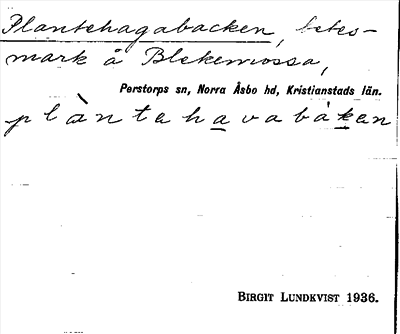 Plantehagabacken, betes-
mark å Blekemossa,
Perstorps sn, Norra Åsbo hd, Kristianstads län.
plàntehavabàken
BIRGIT LUNDKVIST 1936.